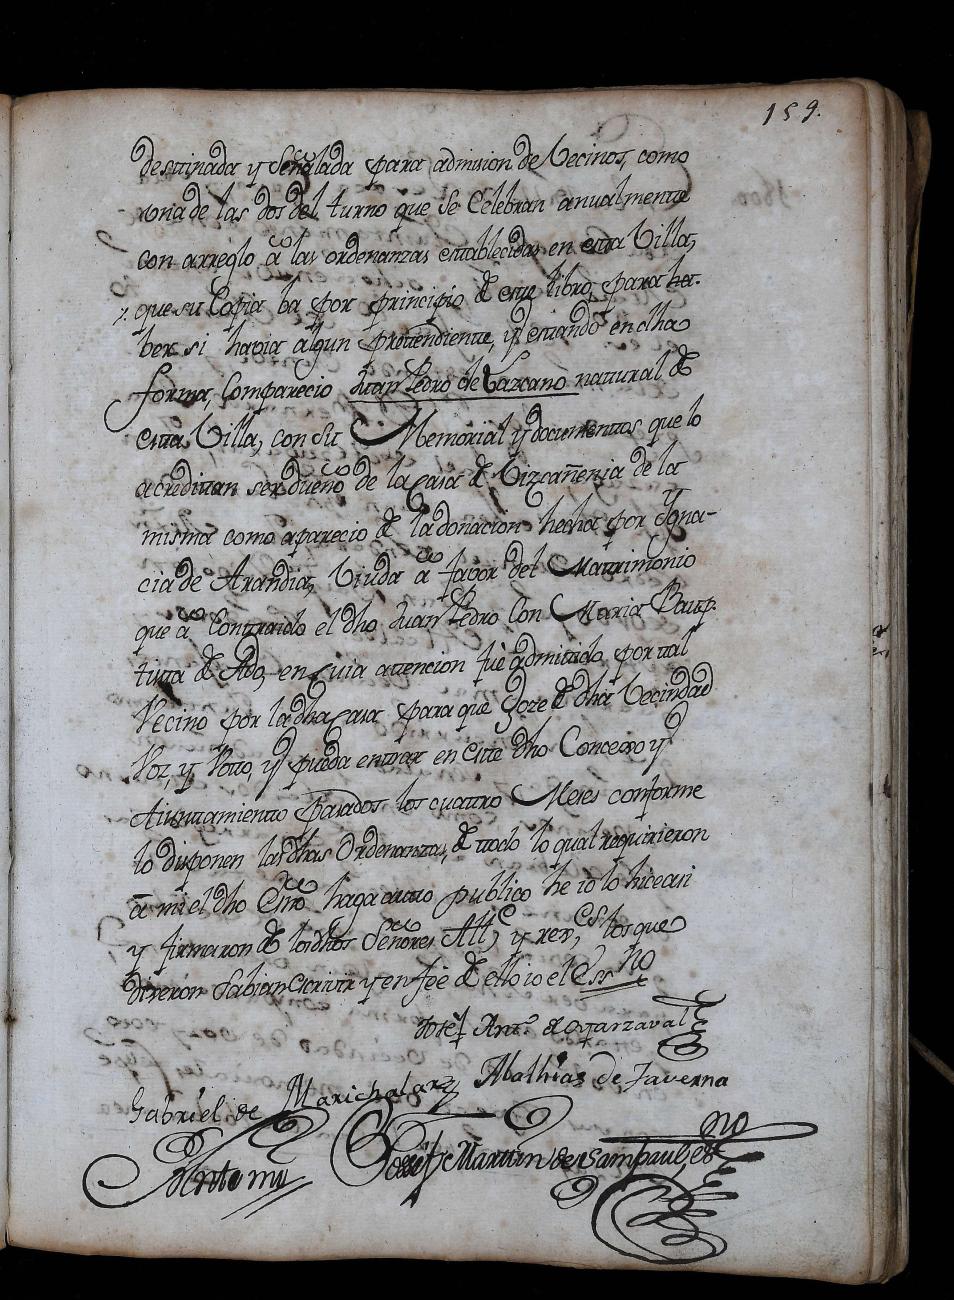 159.
destinada y Señalada para admision de Vecinos, como
una de las dos del turno que se Celebran anualmente
con arreglo â las ordenanzas establecidas en esta Villa,
que su Copia ba por principio de este libro, para ha-
ber si havia algun pretendiente, y estando en dha
forma, Comparecio Juan Pedro de Lazcano natural de
esta Villa, con su Memorial y documentos que lo
acreditan ser dueño de la Casa de Vizcañenia de la
misma como aparecio de la donacion hecha por Ygna-
cia de Arandia, Viuda â favor del Matrimonio
que â Contraido el dho Juan Pedro Con Maria Baup-
tista de Ado, en cuia attencion fuè admitido por tal
Vecino por la dha Casa para que Goze de dha Vecindad
Voz, y Voto, y pueda entrar en este dho Concejo y
Aiuntamiento pasados los cuattro Meses conforme
lo disponen las dhas Ordenanzas, de todo lo qual requirieron
â mi el dho Essno haga autto publico he io lo hice asi
y firmaron de los dhos Señores Alle y rexes los que
dixeron Sabian escrivir y en feè de ello io el Essno
Josef Anto de Oyarzaval
Mathias de Zaverna
Gabriel de Marichalar
Antemi Josef Martin de Sampaul Esno